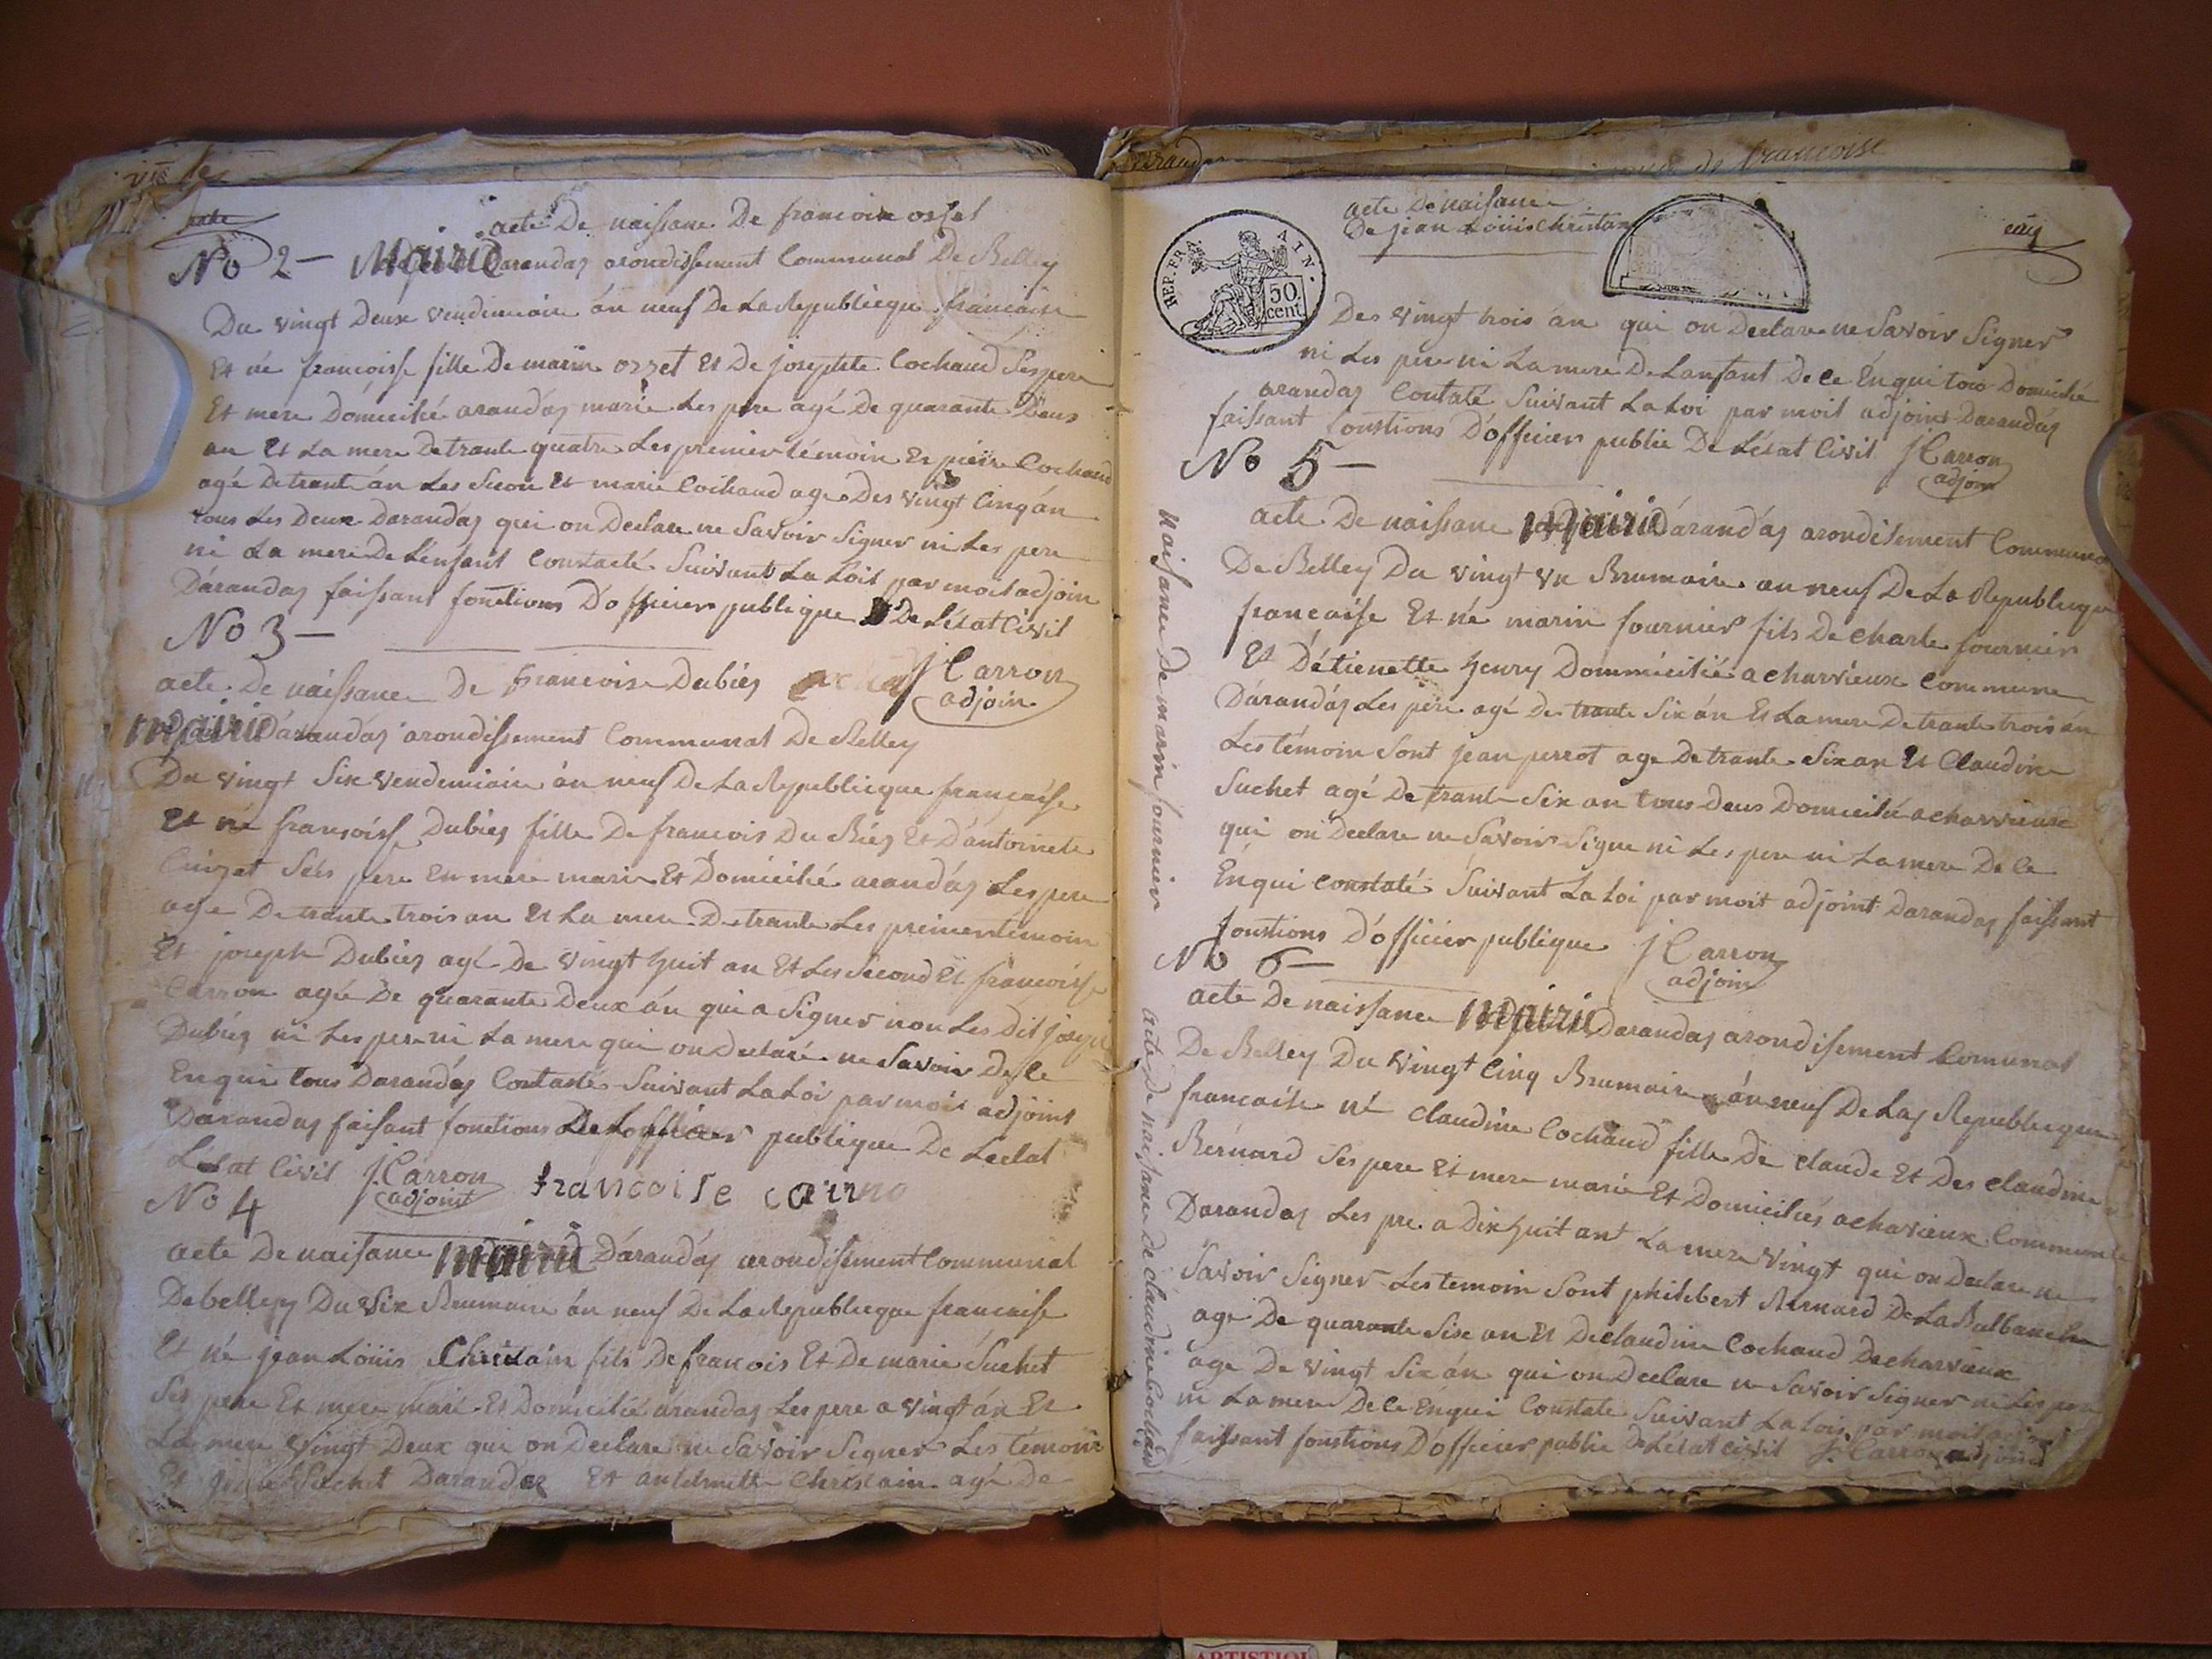 acte De naissane De francoise ozset
No 2 – Mairie Darandas arondissement Communal De Belley
Du vingt Deux vendimiaire án neuf De La Republicque francaise
Et né francoisse fille De marin ozzet Et De josephte Cochaud Ses pere
Et mere Domicilié arandas marié Les pere agé De quarante Deus
an Et La mere De trante quatre Les premier témoin Et pierre Cochaud
agé De trante án Les Secon Et marie Cochaud age Des vingt Cinq án
tous Les Deux Darandas qui on Declare ne Savoir Signer ni Les pere
ni La mere De L'enfant Constacté Suivant La Loit par moit adjoin
Dárandas faissant fonctions D'officier publique De L'état Civil
No 3 – J Carron
acte De naissance De francoise Dubiés adjoin
Mairie Dárandas arondissement Communal De Belley
Du vingt Six vendemiaire án neuf De La Republicque francaise
Et né fransoisse Dubiés fille De francois Du Biés Et D'antoinete
Cuizet Sés pere Eu mere marie Et Domicilié arandas Les pere
age De trante trois an Et La mere De trante Les preimer temoin
Et joseph Dubiés agé De vingt huit an Et Les Second Et francoisse
Carron agée De quarante Deux án qui a Signer non Les Dit joseph
Dubiés ni Les pere ni La mere qui on declaré ne Savoir De Ce
Enqui tous Darandas Contasté Suivant La Loi par moit adjoint
Darandas faisant fonctions De Lofficier publique De Leclat
Letat Civil J. Carron francoise cairno
adjoint
No 4
acte De naisance Mairie Dárandas arondissement Communal
De belley Du Six Brumaire án neuf De La Republicque francaisse
Et né jean Löüis Christain fils De francois Et De marie Suchet
Ses pere Et mere marié Et Domicilié arandas Les pere a vingt án Et
La mere vingt Deux qui on Declare ne Savoir Signer Les témoin
Et Suchet Darandas Et antelmette Christain agé De
acte De naissance
De jean Löüis Christain
cinq
REP. FRA. AIN.
50 cent
Des vingt trois an qui on Declare ne Savoir Signer
ni Les pere ni La mere De Lanfant De Ce Enqui tous Domicilié
arandas Contaté Suivant La Loi par moit adjoint Darandas
faissant fonstions D'officier public De L'état Civil J Carron
adjoin
No 5 –
acte De naissane Mairie Dárandas arondisement Communal
De Belley Du vingt un Brumaire an neuf De La Republicque
francaisse Et né marin fournier fils De Charle fournier
Et D'étienette henry Dommicilié a charvieux Commune
Dárandas Les pere agé De trante Six án Et La mere De trante trois án
Les témoin Sont jean perrot age De trante Six an Et Claudine
Suchet agé De trante Six an tous Deus Domicilié a charvieux
qui on Declare ne Savoir Signe ni Les pere ni La mere De Ce
Enqui constaté Suivant La Loi par moit adjoint Darandas faissant
fonstions D'officier publique J Carron
adjoin
naisance De marin fournier
No 6 –
acte De naissance Mairie Darandas arondisement Comunal
De Belley Du vingt Cinq Brumaire án neuf De Las Republicque
francaise né claudine Cochaud fille De claude Et Des claudine
Bernard Ses pere Et mere marié Et Domiciliés a chavieux Commune
Darandas Les pre a Dix huit ant La mere vingt qui on Declare ne
Savoir Signer Les temoin Sont philibert Bernard De La Balbanche
age De quarante Six an Et De claudine Cochaud De charvieux
age De vingt Six án qui on Declare ne Savoir Signer ni Les pere
ni La mere De Ce Enqui Constate Suivant La Lois par moit adjoint
faissant fonstions D'officier public De L'état civil J. Carron adjoint
acte De naisance De claudine Cochaud